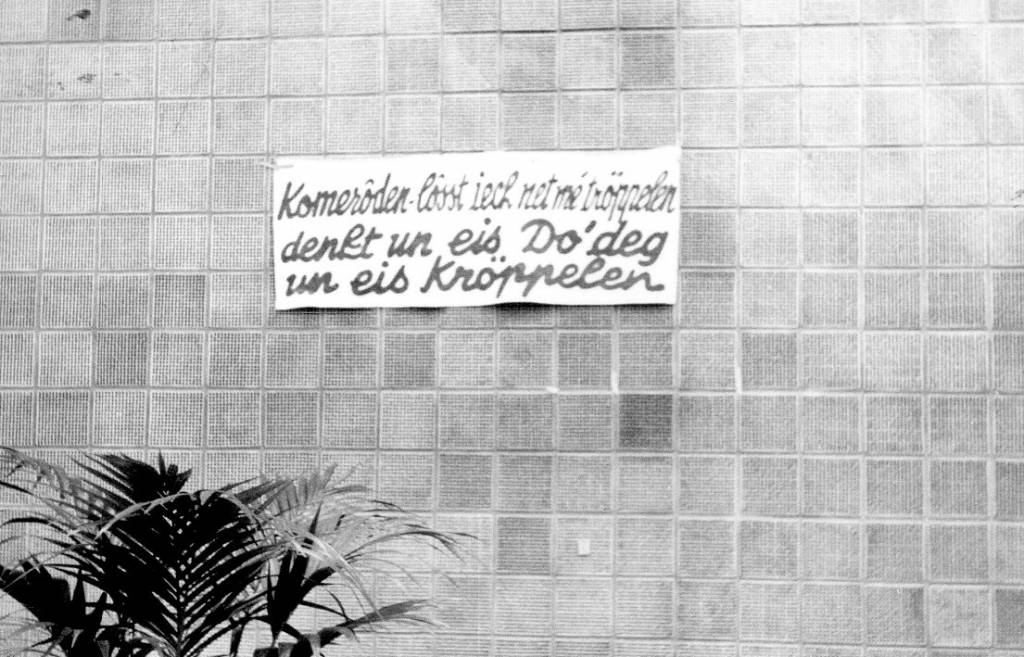 Komerôden-lôsst iech net mé tröppelen
denkt un eis Do'deg
un eis Kröppelen